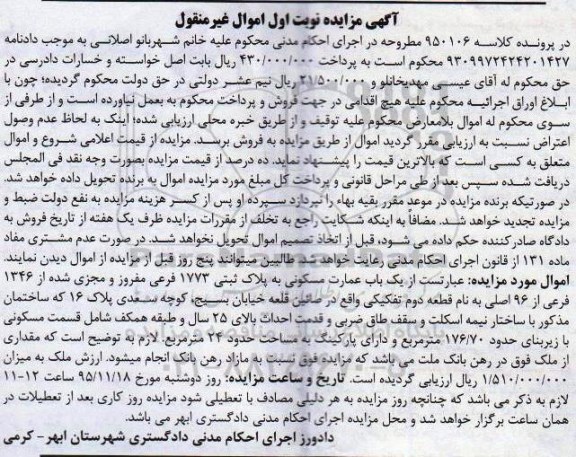 آگهی مزایده نوبت اول اموال غیرمنقول
در پرونده کلاسه ۹۵۰۱۰۶ مطروحه در اجرای احکام مدنی محکوم علیه خانم شهربانو اصلانی به موجب دادنامه
۹۳۰۹۹۷۲۴۲۴۲۰۱۴۲۷ محکوم است به پرداخت ۴۳۰/۰۰۰/۰۰۰ ریال بابت اصل خواسته و خسارات دادرسی در
حق محکوم له آقای عیسی مهدیخانلو و ۲۱/۵۰۰/۰۰۰ ریال نیم عشر دولتی در حق دولت محکوم گردیده؛ چون با
ابلاغ اوراق اجرائیه محکوم علیه هیچ اقدامی در جهت فروش و پرداخت محکوم به بعمل نیاورده است و از طرفی از
سوی محکوم له اموال بلامعارض محکوم علیه توقیف و از طریق خبره محلی ارزیابی شده؛ اینک به لحاظ عدم وصول
اعتراض نسبت به ارزیابی مقرر گردید اموال از طریق مزایده به فروش برسد. مزایده از قیمت اعلامی شروع و اموال
متعلق به کسی است که بالاترین قیمت را پیشنهاد نماید. ده درصد از قیمت مزایده بصورت وجه نقد فی المجلس
دریافت شده سپس بعد از طی مراحل قانونی و پرداخت کل مبلغ مورد مزایده اموال به برنده تحویل داده خواهد شد.
در صورتیکه برنده مزایده در موعد مقرر بقیه بهاء را نپردازد سپرده او پس از کسر هزینه مزایده به نفع دولت ضبط و
مزایده تجدید خواهد شد. مضافاً به اینکه شکایت راجع به تخلف از مقررات مزایده ظرف یک هفته از تاریخ فروش به
دادگاه صادرکننده حکم داده می شود، قبل از اتخاذ تصمیم اموال تحویل نخواهد شد. در صورت عدم مشتری مفاد
ماده ۱۳۱ از قانون اجرای احکام مدنی رعایت خواهد شد طالبین میتوانند پنج روز قبل از مزایده از اموال دیدن نمایند.
اموال مورد مزایده: عبارتست از یک باب عمارت مسکونی به پلاک ثبتی ۱۷۷۳ فرعی مفروز و مجزی شده از ۱۳۴۶
فرعی از ۹۶ اصلی به نام قطعه دوم تفکیکی واقع در صائین قلعه خیابان بسیج، کوچه سعدی پلاک ۱۶ که ساختمان
مذکور با ساختار نیمه اسکلت و سقف طاق ضربی و قدمت احداث بالای ۲۵ سال و طبقه همکف شامل قسمت مسکونی
با زیربنای حدود ۱۷۶/۷۰ مترمربع و دارای پارکینگ به مساحت حدود ۲۴ مترمربع. لازم به توضیح است که مقداری
از ملک فوق در رهن بانک ملت می باشد که مزایده فوق نسبت به مازاد رهن بانک انجام میشود. ارزش ملک به میزان
۱/۵۱۰/۰۰۰/۰۰۰ ریال ارزیابی گردیده است. تاریخ و ساعت مزایده: روز دوشنبه مورخ ۹۵/۱۱/۱۸ ساعت ۱۲-۱۱
لازم به ذکر می باشد که چنانچه روز مزایده به هر دلیلی مصادف با تعطیلی شود مزایده روز کاری بعد از تعطیلات در
همان ساعت برگزار خواهد شد و محل مزایده اجرای احکام مدنی دادگستری ابهر می باشد.
دادورز اجرای احکام مدنی دادگستری شهرستان ابهر- کرمی